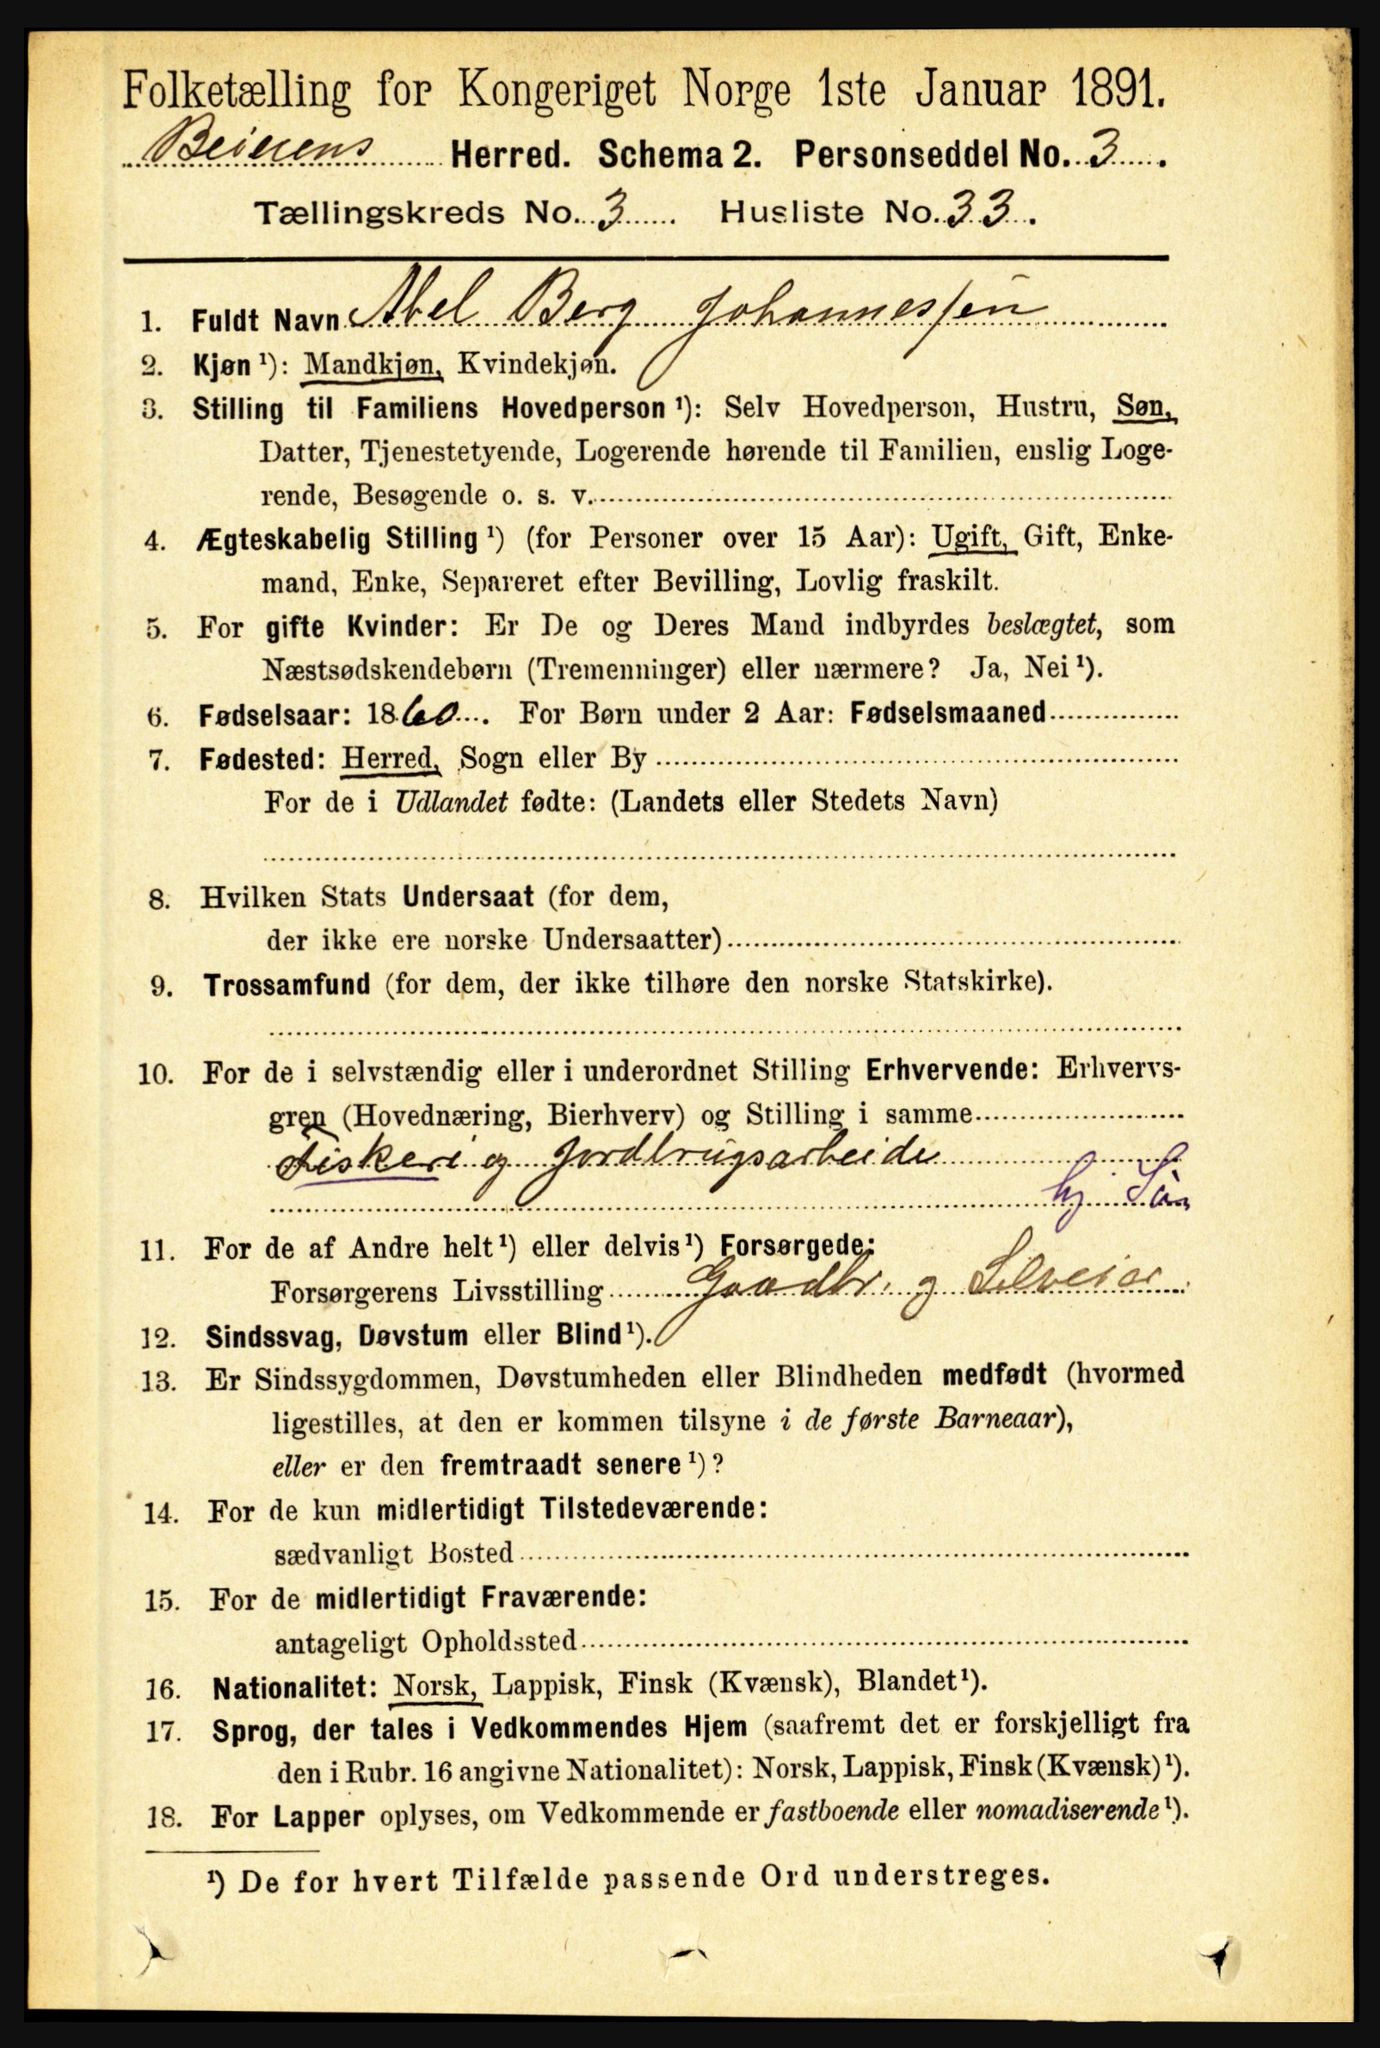 Folketælling for Kongeriget Norge 1ste Januar 1891.
Beierens Herred. Schema 2. Personseddel No. 3.
Tællingskreds No. 3 Husliste No. 33.
1. Fuldt Navn Abel Berg Johannessen
2. Kjøn ¹): Mandkjøn, Kvindekjøn.
3. Stilling til Familiens Hovedperson ¹): Selv Hovedperson, Hustru, Søn,
Datter, Tjenestetyende, Logerende hørende til Familien, enslig Loge-
rende, Besøgende o. s. v.
4. Ægteskabelig Stilling ¹) (for Personer over 15 Aar): Ugift, Gift, Enke-
mand, Enke, Separeret efter Bevilling, Lovlig fraskilt.
5. For gifte Kvinder: Er De og Deres Mand indbyrdes beslægtet, som
Næstsødskendebørn (Tremenninger) eller nærmere? Ja, Nei ¹).
6. Fødselsaar: 1860. For Børn under 2 Aar: Fødselsmaaned
7. Fødested: Herred, Sogn eller By
For de i Udlandet fødte: (Landets eller Stedets Navn)
8. Hvilken Stats Undersaat (for dem,
der ikke ere norske Undersaatter)
9. Trossamfund (for dem, der ikke tilhøre den norske Statskirke).
10. For de i selvstændig eller i underordnet Stilling Erhvervende: Erhvervs-
gren (Hovednæring, Bierhverv) og Stilling i samme
Fiskeri og Jordbrugsarbeide
hj. Søn
11. For de af Andre helt ¹) eller delvis ¹) Forsørgede:
Forsørgerens Livsstilling Gaardbr. og Selveier
12. Sindssvag, Døvstum eller Blind ¹).
13. Er Sindssygdommen, Døvstumheden eller Blindheden medfødt (hvormed
ligestilles, at den er kommen tilsyne i de første Barneaar),
eller er den fremtraadt senere ¹)?
14. For de kun midlertidigt Tilstedeværende:
sædvanligt Bosted
15. For de midlertidigt Fraværende:
antageligt Opholdssted
16. Nationalitet: Norsk, Lappisk, Finsk (Kvænsk), Blandet ¹).
17. Sprog, der tales i Vedkommendes Hjem (saafremt det er forskjelligt fra
den i Rubr. 16 angivne Nationalitet): Norsk, Lappisk, Finsk (Kvænsk) ¹).
18. For Lapper oplyses, om Vedkommende er fastboende eller nomadiserende ¹).
¹) De for hvert Tilfælde passende Ord understreges.